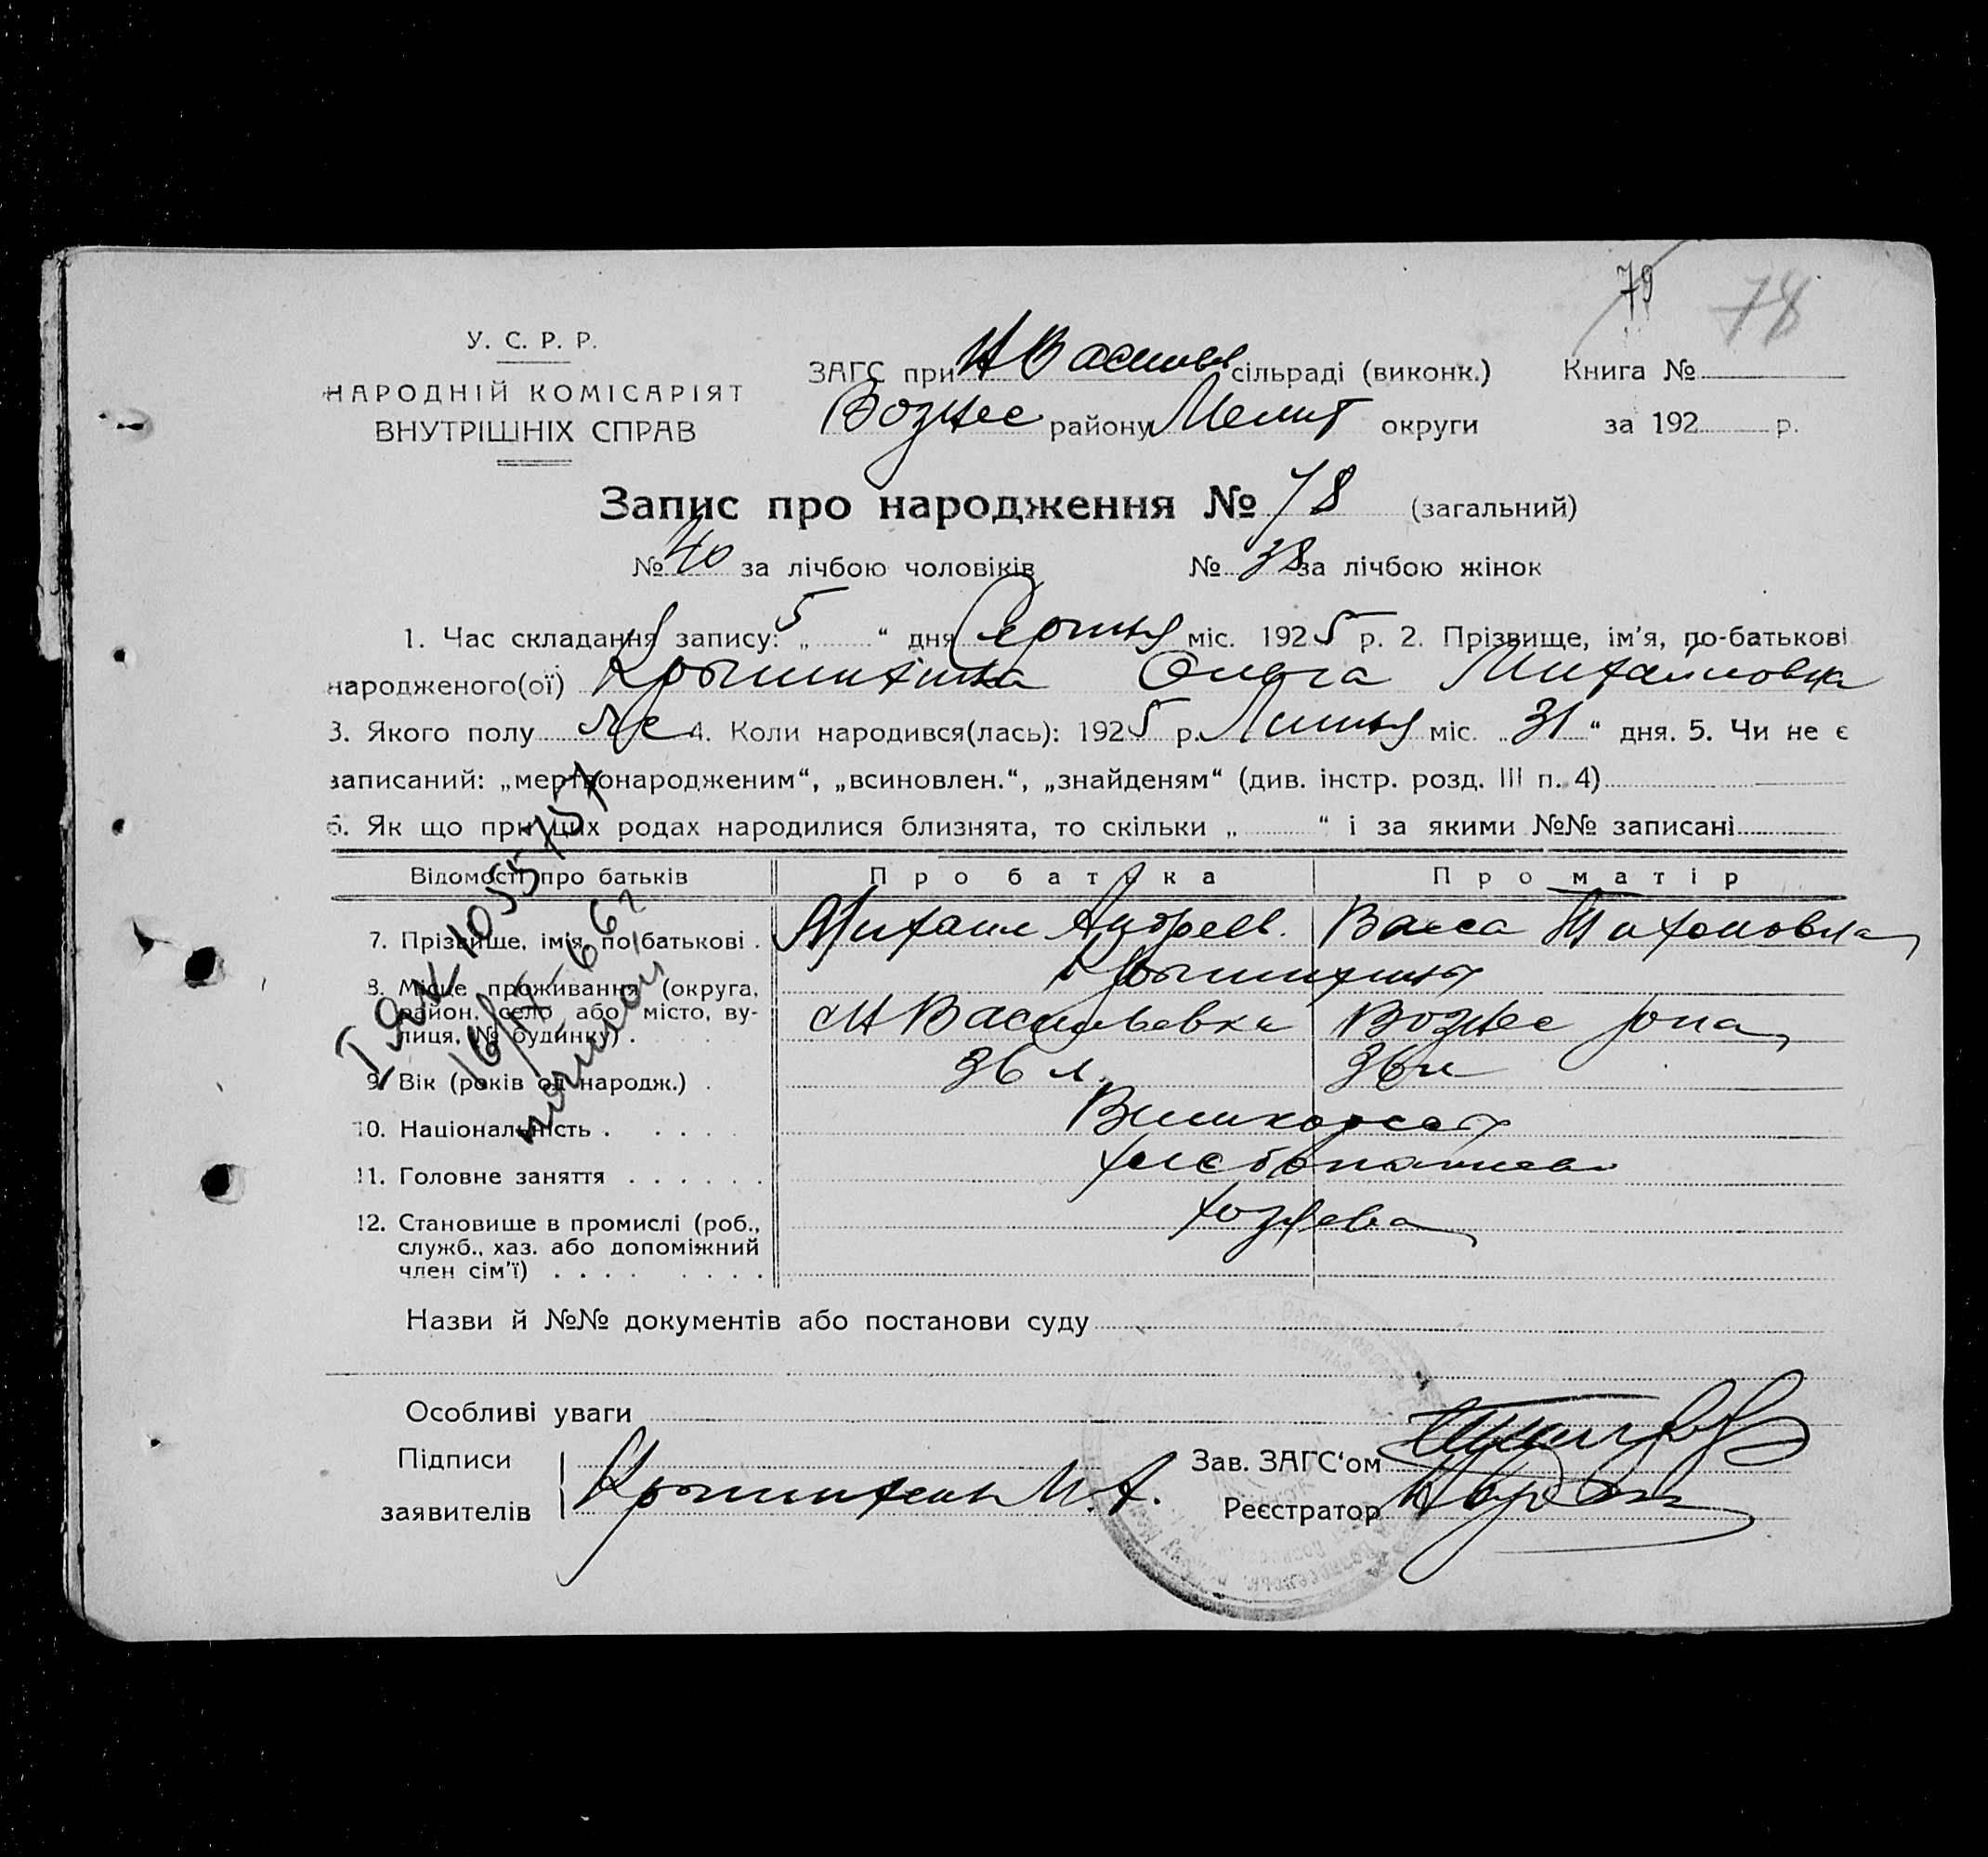 79 78
У. С. Р. Р.
НАРОДНІЙ КОМІСАРІЯТ
ВНУТРІШНІХ СПРАВ
ЗАГС при Н Васильев сільраді (виконк.) Книга №
Вознес району Мелит округи за 192 р.
Запис про народження № 78 (загальний)
№ 40 за лічбою чоловіків № 38 за лічбою жінок
1. Час складання запису: „ 5 “ дня Серпня міс. 1925 р. 2. Прізвище, ім'я, по-батькові
народженого(ої) Крышихина Ольга Михайловна
3. Якого полу же 4. Коли народився(лась): 1925 р. Липня міс. „31“ дня. 5. Чи не є
записаний: „мертвонародженим“, „всиновлен.“, „знайденям“ (див. інстр. розд. III п. 4)
6. Як що при цих родах народилися близнята, то скільки „ “ і за якими №№ записані
Відомості про батьків Про батька Про матір
7. Прізвище, ім'я, по батькові . Михаил Андреев. Васса Тихоновна
Крышихины
8. Місце проживання (округа,
район, село або місто, ву-
лиця, № будинку) . Н Васильевка Вознес рона
9. Вік (років од народж.) . 36 л. 36 л
10. Національність . . . . Великоросы
11. Головне заняття . . . . . . хлебопашев
12. Становище в промислі (роб.,
служб., хаз. або допоміжний
член сім'ї) . . . . . . . . хозяева
16/V 66г
Назви й №№ документів або постанови суду
Особливі уваги
Підписи
заявителів Крышихин М. А.
Зав. ЗАГС‘ом
Реєстратор